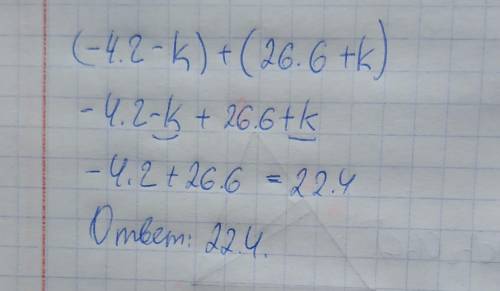 (-4.2-k)+(26.6+k)
-4.2-k+26.6+k
-4.2+26.6=22.4
Ответ: 22.4.